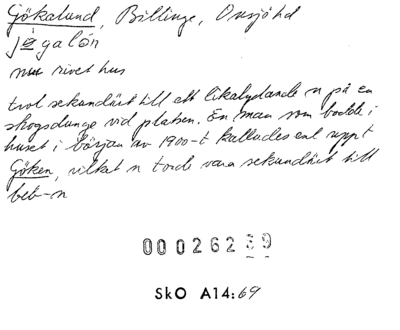 Gökalund, Billinge, Onsjöhd
jøgalón
nu rivet hus
trol sekundärt till ett likalydande n på en
skogsdunge vid platsen. En man som bodde i
huset i början av 1900-t kallades enl uppt
Göken, vilket n torde vara sekundärt till
beb-n
00026239
SkO A14:69